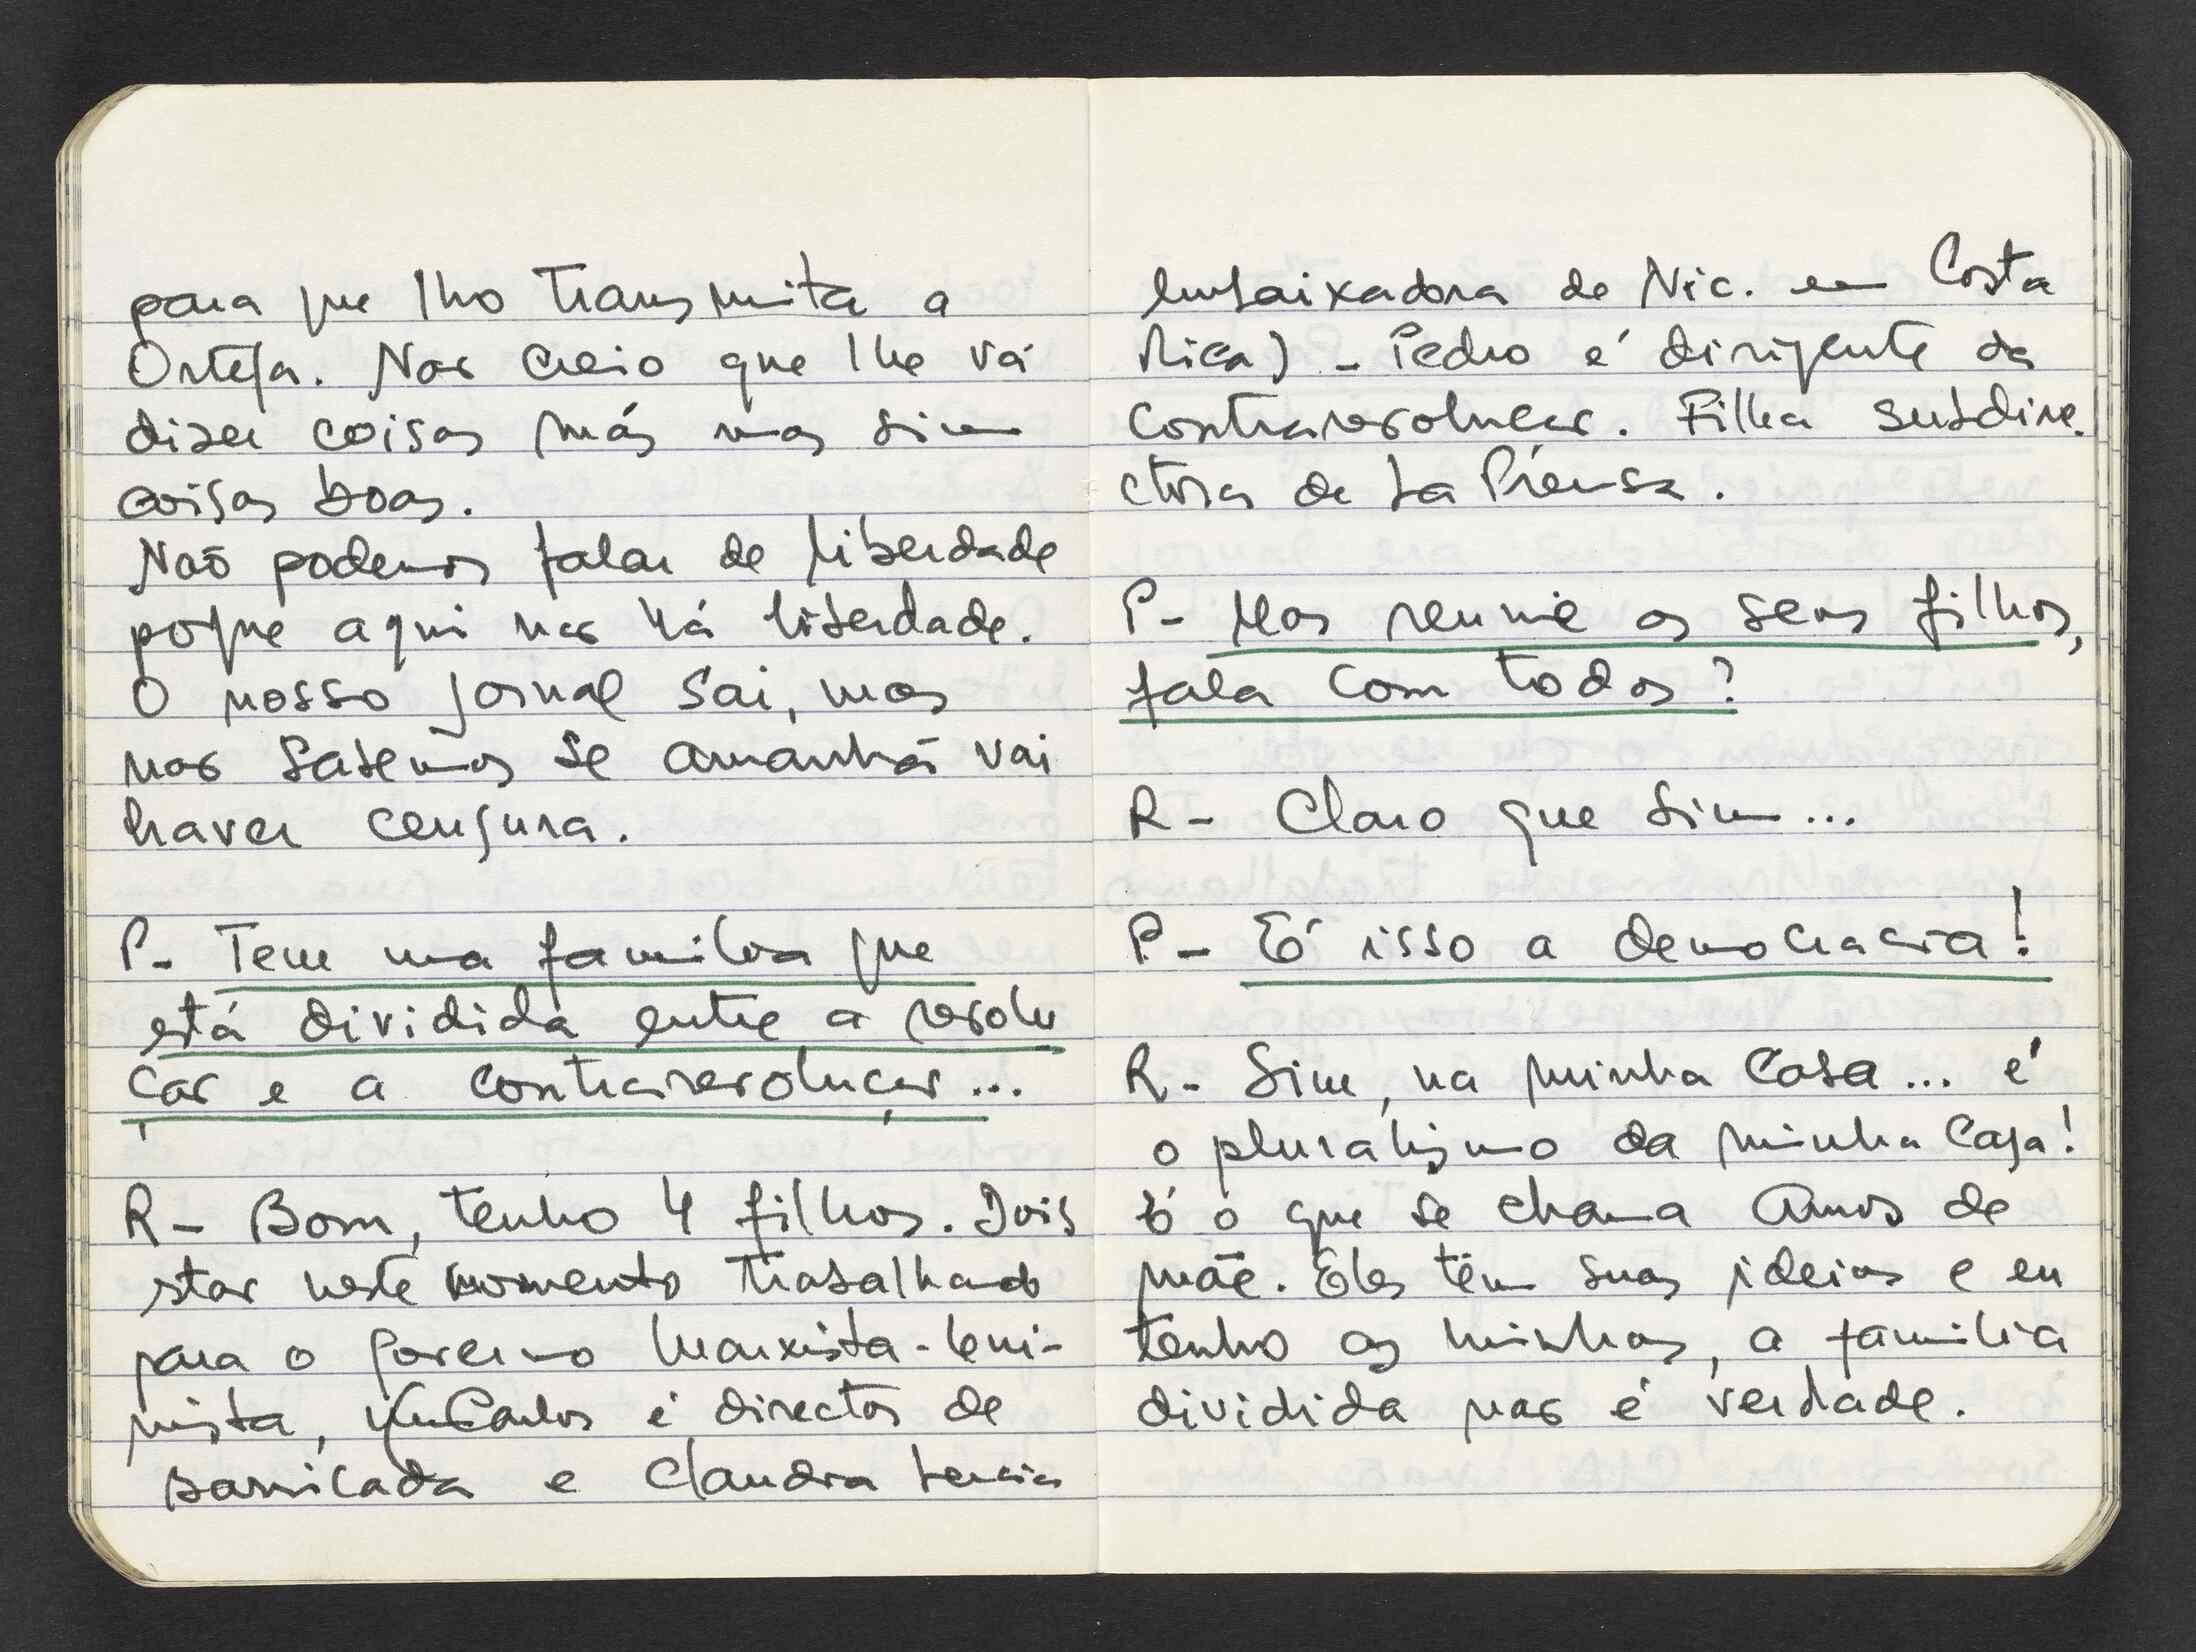 para que lho transmita a
Ortega. Não creio que lhe vá
dizer coisas más mas sim
coisas boas.
Não podemos falar de liberdade
porque aqui não há liberdade.
O nosso jornal sai, mas
não sabemos se amanhã vai
haver censura.
P- Tem uma familia que
está dividida entre a revolu
ção e a contrarevolução...
R- Bom, tenho 4 filhos. Dois
estão neste momento trabalhando
para o governo marxista-leni-
nista, Carlos é director de
barricada e Claudia
embaixadora de Nic. em Costa
Rica) - Pedro é dirigente da
contrarevolução. Filha subdire.
ctora de La Prensa.
P- Mas reune os seus filhos,
fala com todos?
R- Claro que sim...
P- É isso a democracia!
R- Sim, na minha casa... é
o pluralismo da minha casa!
É o que se chama amor de
mãe. Eles têm suas ideias e eu
tenho as minhas, a familia
dividida não é verdade.